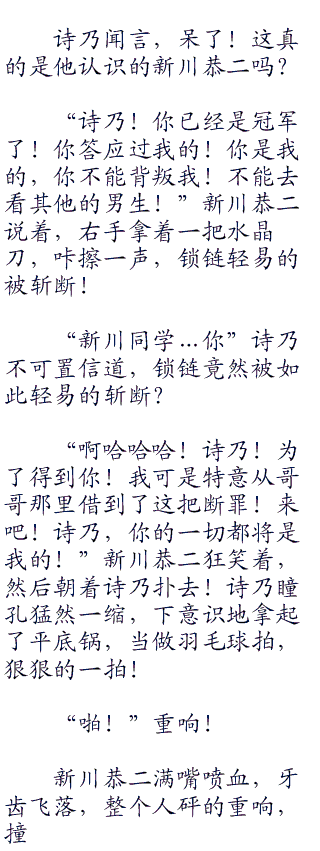 诗乃闻言，呆了！这真
的是他认识的新川恭二吗？
“诗乃！你已经是冠军
了！你答应过我的！你是我
的，你不能背叛我！不能去
看其他的男生！”新川恭二
说着，右手拿着一把水晶
刀，咔擦一声，锁链轻易的
被斩断！
“新川同学…你”诗乃
不可置信道，锁链竟然被如
此轻易的斩断？
“啊哈哈哈！诗乃！为
了得到你！我可是特意从哥
哥那里借到了这把断罪！来
吧！诗乃，你的一切都将是
我的！”新川恭二狂笑着，
然后朝着诗乃扑去！诗乃瞳
孔猛然一缩，下意识地拿起
了平底锅，当做羽毛球拍，
狠狠的一拍！
“啪！”重响！
新川恭二满嘴喷血，牙
齿飞落，整个人砰的重响，
撞